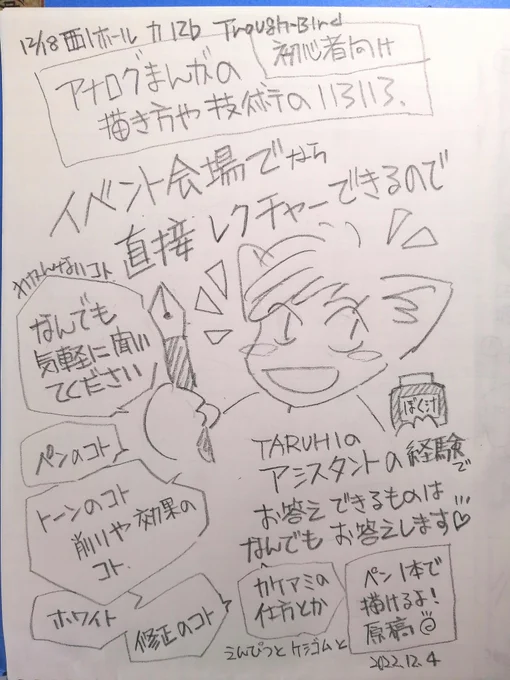 12/18 西1ホール カ12b Trough-Bird
初心者向け
アナログまんがの
描き方や技術的のいろいろ、
イベント会場でなら
直接レクチャーできるので
わかんないコト
なんでも
気軽に聞い
てください
ぼく汁
ペンのコト
TARUHIの
アシスタントの経験で
お答えできるものは
なんでもお答えします♡
トーンのコト
削りや効果の
コト
ホワイト
修正のコト
カケアミの
仕方とか
ペン1本で
描けるよ!
原稿
えんぴつとケシゴムと
2022.12.4